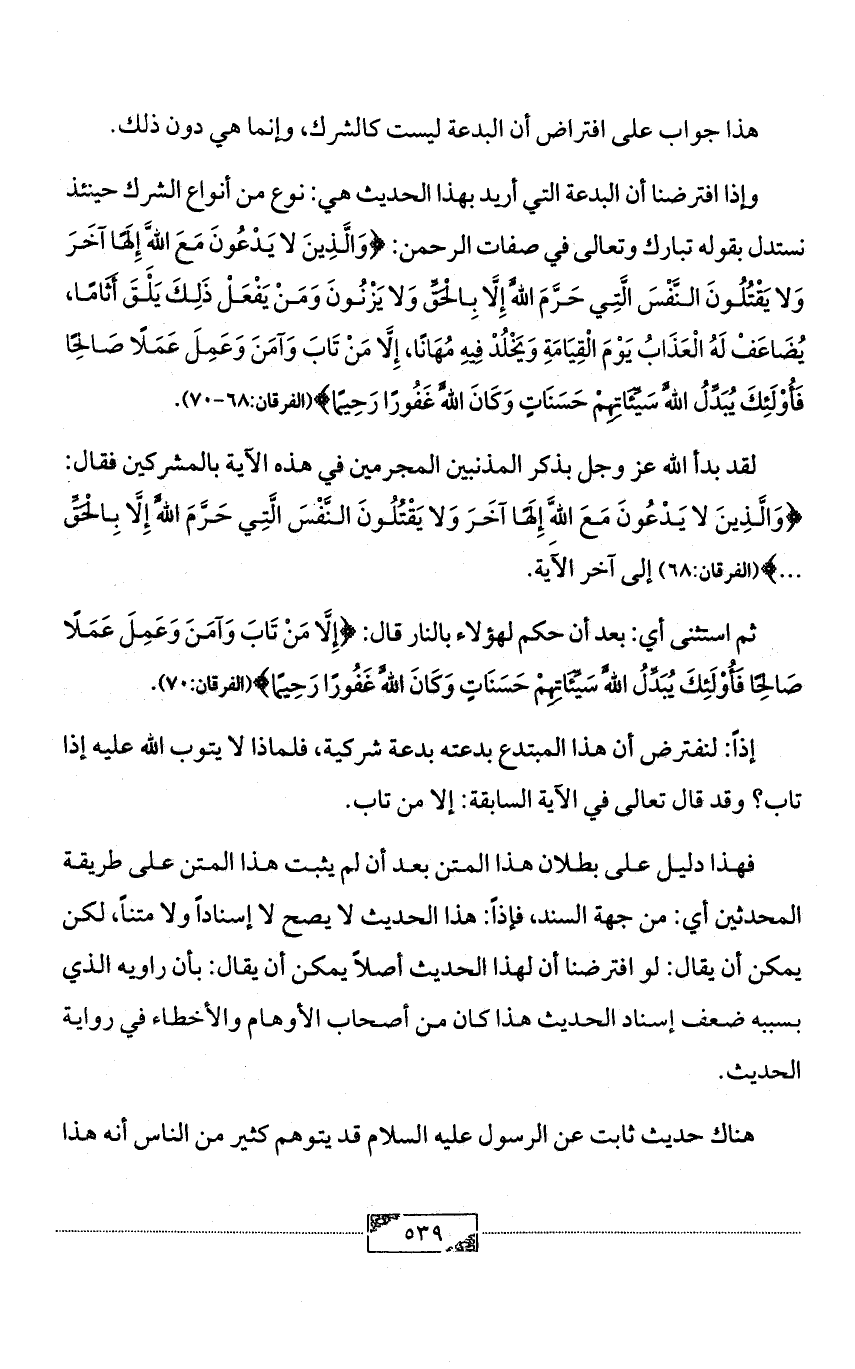 هذا جواب على افتراض أن البدعة ليست كالشرك، وإنما هي دون ذلك.
وإذا افترضنا أن البدعة التي أريد بهذا الحديث هي: نوع من أنواع الشرك حينئذ
نستدل بقوله تبارك وتعالى في صفات الرحمن: ﴿وَالَّذِينَ لا يَدْعُونَ مَعَ اللهَِّ إِلَهًا آخَرَ
وَلا يَقْتُلُونَ النَّفْسَ الَّتِي حَرَّمَ اللهُ إِلَّا بِالْحَقِّ وَلا يَزْنُونَ وَمَنْ يَفْعَلْ ذَلِكَ يَلْقَ أَثَامًا،
يُضَاعَفْ لَهُ الْعَذَابُ يَوْمَ الْقِيَامَةِ وَيَخْلُدْ فِيهِ مُهَانًا، إِلَّا مَنْ تَابَ وَآمَنَ وَعَمِلَ عَمَلًا صَالِحًا
فَأُوْلَئِكَ يُبَدِّلُ اللهُ سَيِّئَاتِهِمْ حَسَنَاتٍ وَكَانَ اللهُ غَفُورًا رَحِيمًا﴾(الفرقان:٦٨-٧٠).
لقد بدأ الله عز وجل بذكر المذنبين المجرمين في هذه الآية بالمشركين فقال:
﴿وَالَّذِينَ لا يَدْعُونَ مَعَ اللهَِّ إِلَهًا آخَرَ وَلا يَقْتُلُونَ النَّفْسَ الَّتِي حَرَّمَ اللهُ إِلَّا بِالْحَقِّ
...﴾(الفرقان:٦٨) إلى آخر الآية.
ثم استثنى أي: بعد أن حكم لهؤلاء بالنار قال: ﴿إِلَّا مَنْ تَابَ وَآمَنَ وَعَمِلَ عَمَلًا
صَالِحًا فَأُوْلَئِكَ يُبَدِّلُ اللهُ سَيِّئَاتِهِمْ حَسَنَاتٍ وَكَانَ اللهُ غَفُورًا رَحِيمًا﴾(الفرقان:٧٠).
إذاً: لنفترض أن هذا المبتدع بدعته بدعة شركية، فلماذا لا يتوب الله عليه إذا
تاب؟ وقد قال تعالى في الآية السابقة: إلا من تاب.
فهذا دليل على بطلان هذا المتن بعد أن لم يثبت هذا المتن على طريقة
المحدثين أي: من جهة السند، فإذاً: هذا الحديث لا يصح لا إسناداً ولا متناً، لكن
يمكن أن يقال: لو افترضنا أن لهذا الحديث أصلاً يمكن أن يقال: بأن راويه الذي
بسببه ضعف إسناد الحديث هذا كان من أصحاب الأوهام والأخطاء في رواية
الحديث.
هناك حديث ثابت عن الرسول عليه السلام قد يتوهم كثير من الناس أنه هذا
٥٣٩